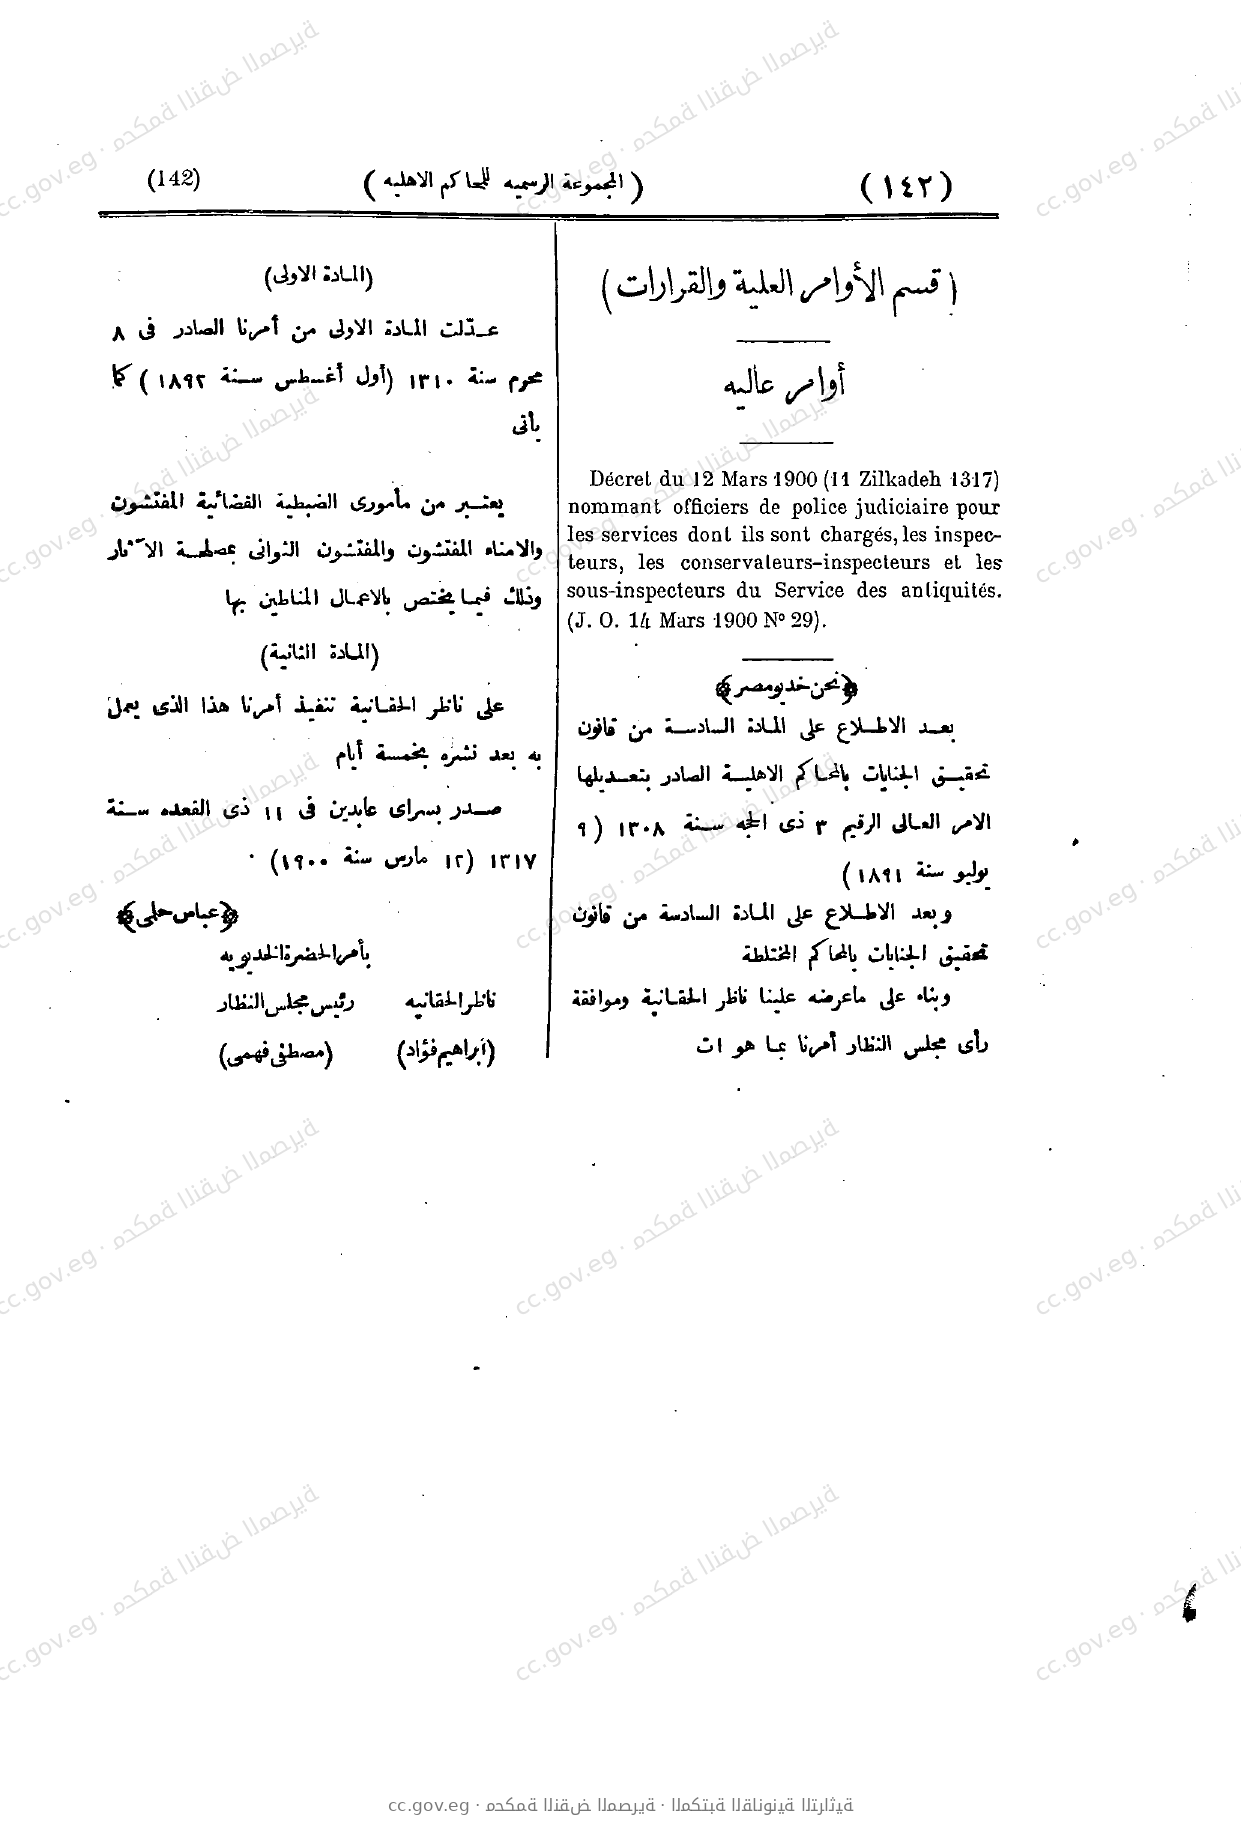 (١٤٢)
(المجموعة الرسميه للمحاكم الاهليه)
(142)
(قسم الأوامر العلية والقرارات)
أوامر عاليه
Décret du 12 Mars 1900 (11 Zilkadeh 1317)
nommant officiers de police judiciaire pour
les services dont ils sont chargés, les inspec-
teurs, les conservateurs-inspecteurs et les
sous-inspecteurs du Service des antiquités.
(J. O. 14 Mars 1900 Nº 29).
﴿نحن خديو مصر﴾
بعد الاطلاع على المادة السادسة من قانون
تحقيق الجنايات بالمحاكم الاهلية الصادر بتعديلها
الامر العالى الرقيم ٣ ذى الحجه سنة ١٣٠٨ (٩
يوليو سنة ١٨٩١)
وبعد الاطلاع على المادة السادسة من قانون
تحقيق الجنايات بالمحاكم المختلطة
وبناء على ماعرضه علينا ناظر الحقانية وموافقة
رأى مجلس النظار أمرنا بما هو ات
(المادة الاولى)
عدّلت المادة الاولى من أمرنا الصادر فى ٨
محرم سنة ١٣١٠ (أول أغسطس سنة ١٨٩٢) كما
يأتى
يعتبر من مأمورى الضبطية القضائية المفتشون
والامناء المفتشون والمفتشون الثوانى بمصلحة الآثار
وذلك فيما يختص بالاعمال المناطين بها
(المادة الثانية)
على ناظر الحقانية تنفيذ أمرنا هذا الذى يعمل
به بعد نشره بخمسة أيام
صدر بسراى عابدين فى ١١ ذى القعده سنة
١٣١٧ (١٢ مارس سنة ١٩٠٠)
﴿عباس حلمى﴾
بأمر الحضرة الخديويه
ناظر الحقانيه رئيس مجلس النظار
(ابراهيم فؤاد) (مصطفى فهمى)
cc.gov.eg · محكمة النقض المصرية · المكتبة القانونية التراثية